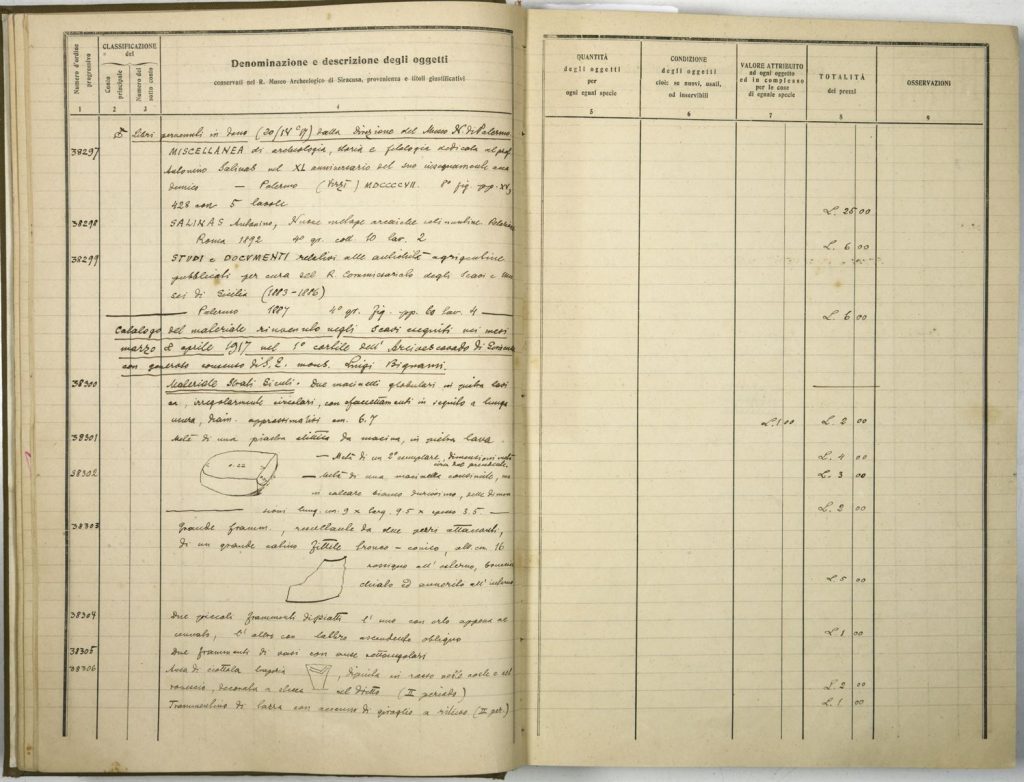 Numero d'ordine progressivo
CLASSIFICAZIONE del
Conto principale
Numero del sotto conto
Denominazione e descrizione degli oggetti
conservati nel R. Museo Archeologico di Siracusa, provenienza e titoli giustificativi
1 2 3 4
Libri pervenuti in dono (20/14 ) dalla Direzione del Museo N. di Palermo.
38297 MISCELLANEA di archeologia, storia e filologia dedicata al prof.
Antonino Salinas nel XL anniversario del suo insegnamento acca
demico — Palermo (Virzì) MDCCCCVII. 8° fig. pp. XV,
428 con 5 tavole
38298 SALINAS Antonino, Nuove metope arcaiche selinuntine. Relazione
Roma 1892 4° gr. col. 10 tav. 2
38299 STUDI e DOCUMENTI relativi alle antichità agrigentine
pubblicati per cura del R. Commissariato degli Scavi e Mu
sei di Sicilia (1883-1886)
Palermo 1887 4° gr. fig. pp. 60 tav. 4
Catalogo del materiale rinvenuto negli Scavi eseguiti nei mesi
marzo e aprile 1917 nel 1° cortile dell' Arcivescovado di Siracusa
con generoso consenso di S. E. mons. Luigi Bignami.
38300 Materiale Strati Siculi. Due macinelli globulari in pietra lavi
ca, irregolarmente circolari, con sfaccettamenti in seguito a lunga
usura, diam. approssimativi cm. 6.7
38301 Metà di una piastra ellittica da macina, in pietra lava
0.22
— Metà di un 2° esemplare, dimensioni
38302 — Metà di una macinella consimile, ma
in calcare bianco durissimo, delle dimen
sioni lung. cm. 9 x larg. 9.5 x spess. 3.5. —
38303 Grande framm., risultante da due pezzi attaccanti,
di un grande fittile tronco-conico, alt. cm. 16
rossigno all'esterno,
ed annerito all'interno
38304 Due piccoli frammenti di piatti l'uno con orlo appena ac
cennato, l'altro con labbro ascendente obliquo
38305 Due frammenti di vasi con anse rettangolari
38306 Ansa di ciottola, dipinta in rosso nelle coste e nel
rovescio, decorata a nel diritto (II periodo)
Frammentino di tazza con accenno di a rilievo (II per.)
QUANTITÀ degli oggetti per ogni egual specie
CONDIZIONE degli oggetti cioè: se nuovi, usati, od inservibili
VALORE ATTRIBUITO ad ogni oggetto ed in complesso per le cose di eguale specie
TOTALITÀ dei prezzi
OSSERVAZIONI
5 6 7 8 9
L. 25 00
L. 6 00
L. 6 00
L. 1 00 L. 2 00
L. 4 00
L. 3 00
L. 2 00
L. 5 00
L. 1 00
L. 2 00
L. 1 00